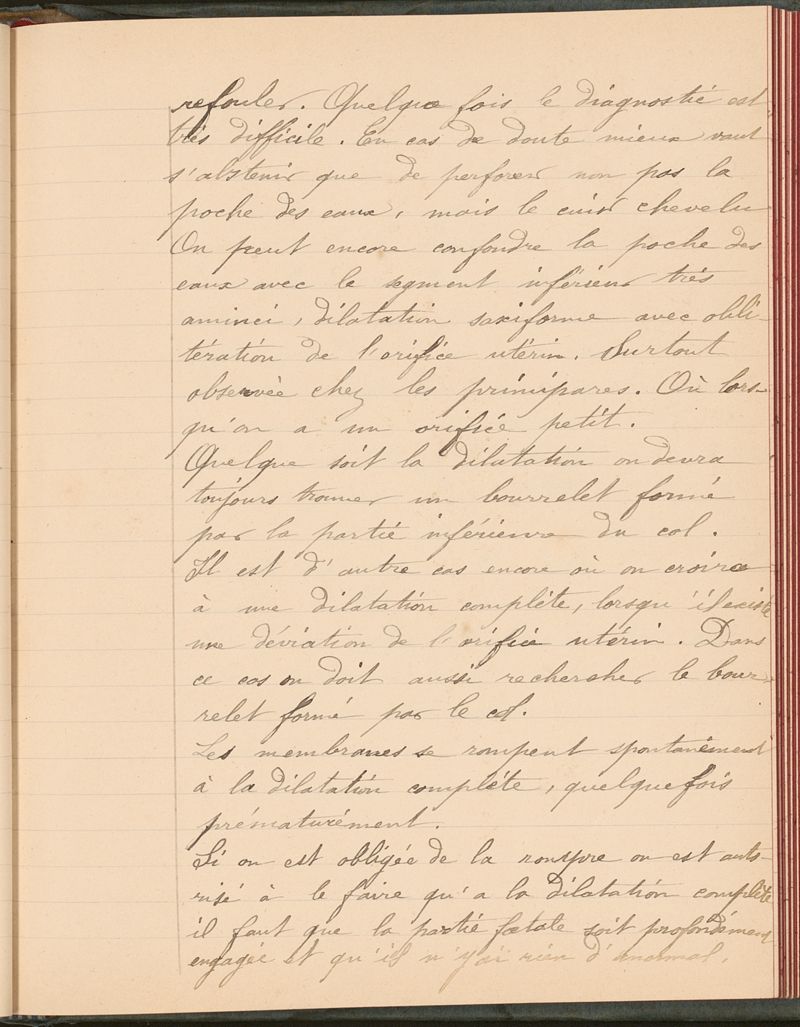 refouler. Quelque fois le diagnostic est
très difficile. En cas de doute mieux vaut
s'abstenir que de perforer non pas la
poche des eaux, mais le cuir chevelu
On peut encore confondre la poche des
eaux avec le segment inférieur très
aminci, dilatation saxiforme avec obli-
tération de l'orifice utérin. Surtout
observée chez les primipares. Où lors-
qu'on a un orifice petit.
Quelque soit la dilatation on devra
toujours trouver un bourrelet formé
par la partie inférieure du col.
Il est d'autre cas encore où on croire
à une dilatation complète, lorsqu'il existe
une déviation de l'orifice utérin. Dans
ce cas on doit aussi rechercher le bour-
relet formé par le col.
Les membranes se rompent spontanément
à la dilatation complète, quelque fois
prématurément.
Si on est obligée de la rompre on est auto-
risé à le faire qu'a la dilatation complète
il faut que la partie fœtale soit profondément
engagée et qu'il n'y ai rien d'anormal.